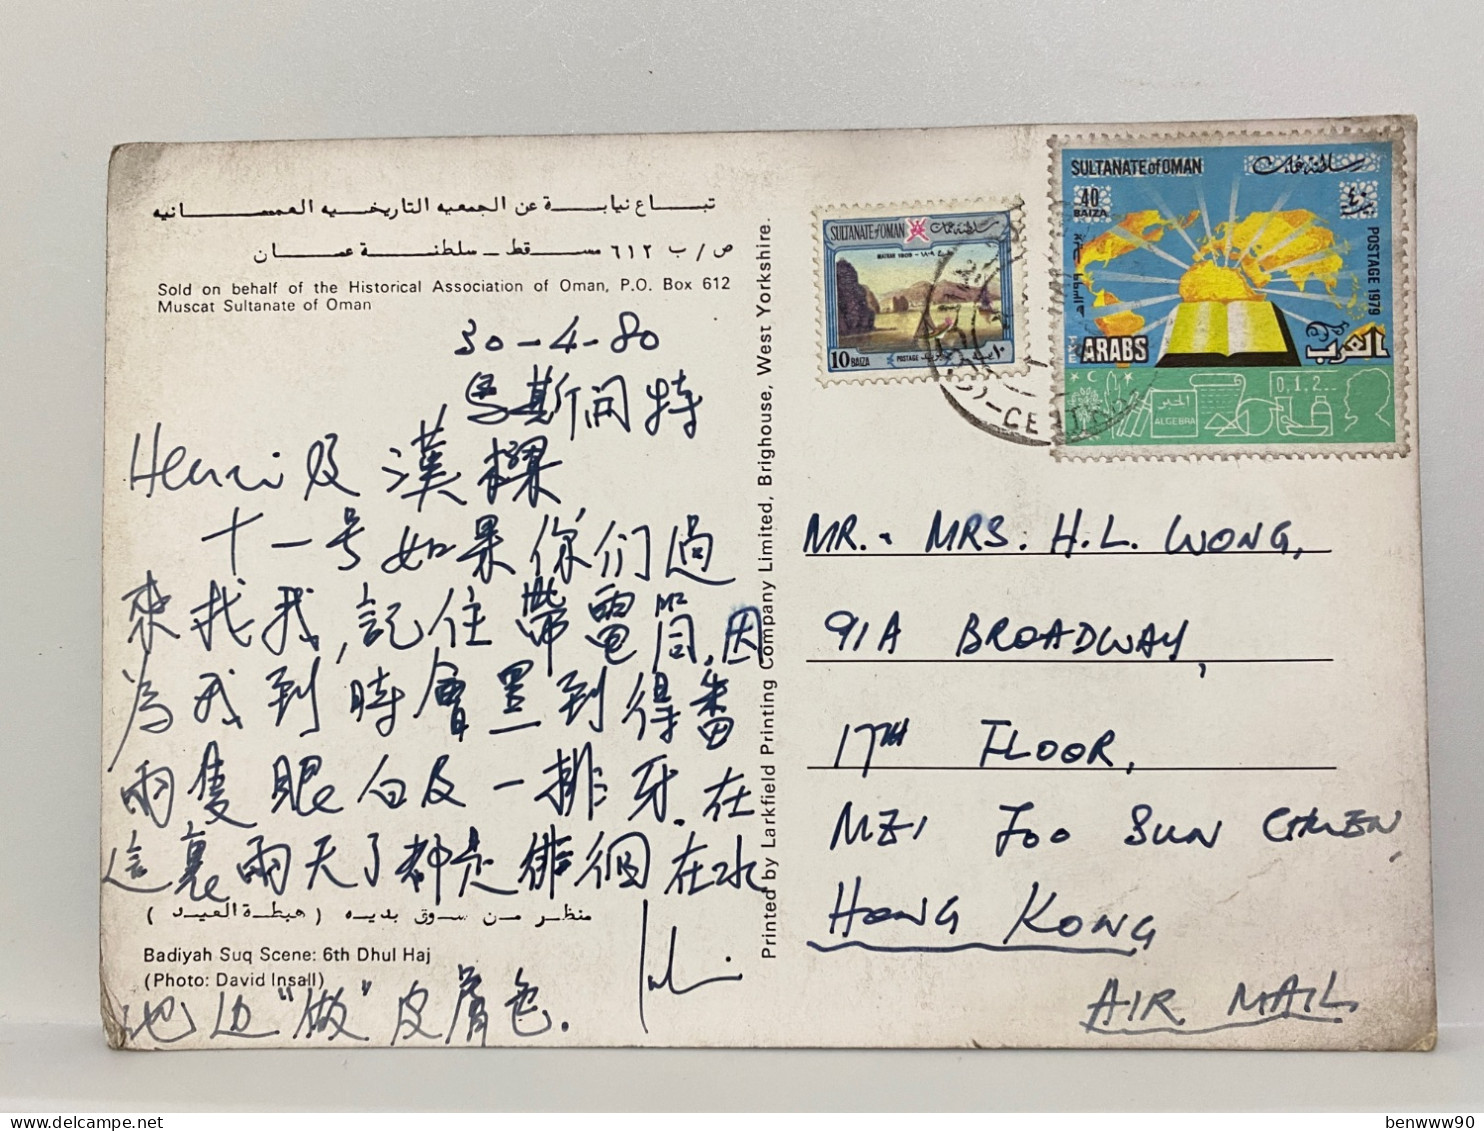 تبـاع نيابـة عن الجمعيه التاريخيه العمـانيه
ص / ب ٦١٢ مسـقط ــ سلطنـة عمـان
Sold on behalf of the Historical Association of Oman, P.O. Box 612
Muscat Sultanate of Oman
30-4-80
馬斯向特
Henri 及 漢樑
十一号如果你们过
来找我,記住帶電筒,因
為我到時會黑到得番
兩隻眼白及一排牙.在
這裏兩天了都是徘徊在水
منظـر مـن سـوق بديـه ( هبطـة العيـد )
Badiyah Suq Scene: 6th Dhul Haj
(Photo: David Insall)
池边“做”皮膚色.
Printed by Larkfield Printing Company Limited, Brighouse, West Yorkshire.
SULTANATE of OMAN سلطنة عمان
MATRAH 1809
10 BAIZA POSTAGE ١٠
SULTANATE of OMAN سلطنة عمان
40 BAIZA ٤٠ بيسة
POSTAGE 1979
THE ARABS العرب
الجبر
ALGEBRA
0,1,2...
MR. & MRS. H.L. WONG,
91A BROADWAY,
17TH FLOOR,
MEI FOO SUN CHUEN,
HONG KONG
AIR MAIL
benwww90